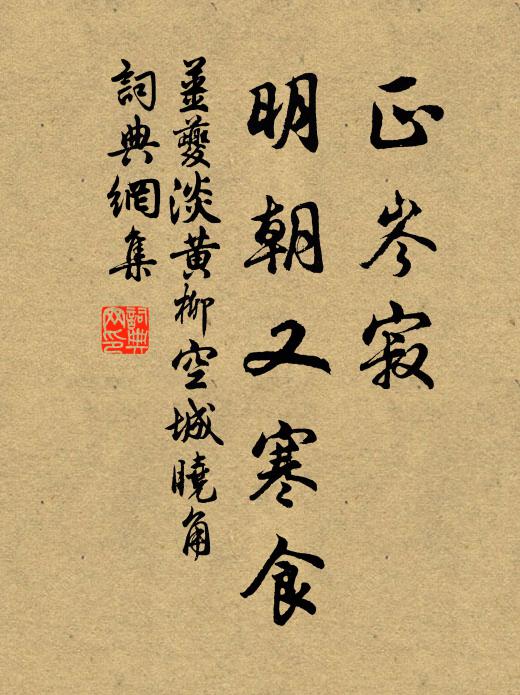 正岑寂
明朝又寒食
姜夔淡黄柳空城曉角
詞典網集
詞典网印